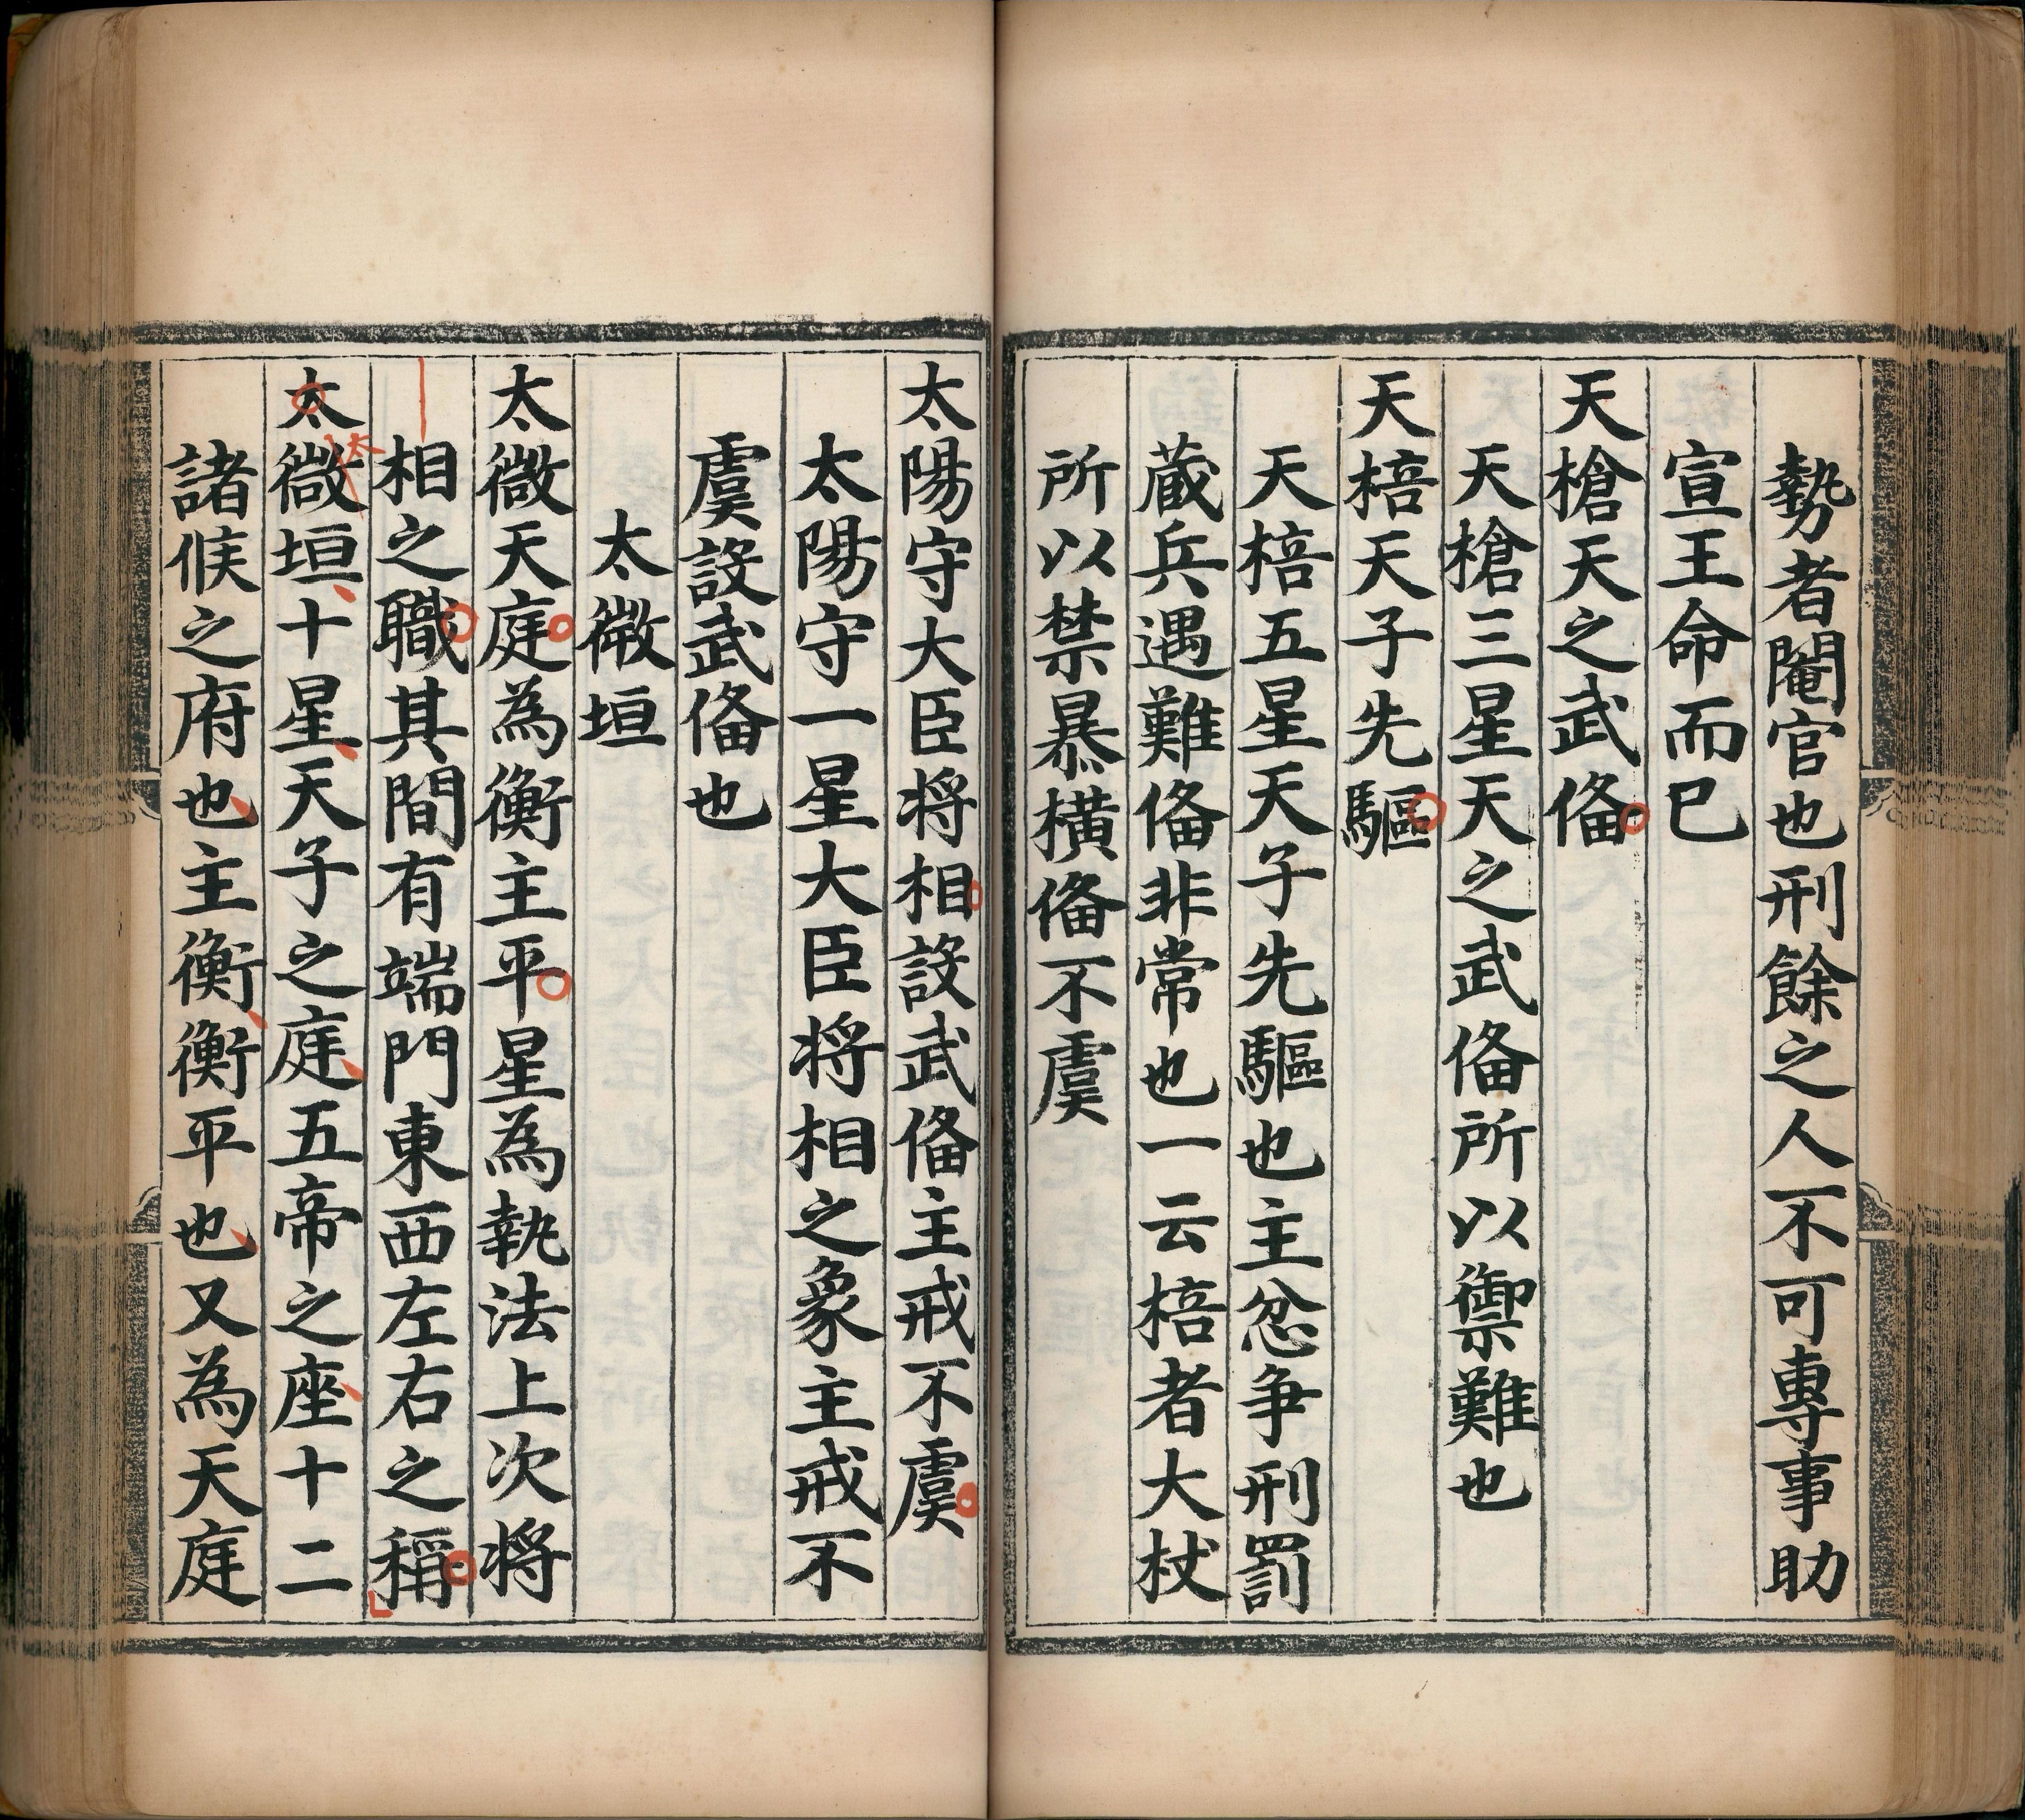 勢者閹官也刑餘之人不可專事助
宣王命而已
天槍天之武俻
天槍三星天之武俻所以禦難也
天棓天子先驅
天棓五星天子先驅也主忿争刑罰
蔵兵遇難俻非常也一云棓者大杖
所以禁暴橫俻不虞
太陽守大臣将相設武俻主戒不虞
太陽守一星大臣将相之象主戒不
虞設武俻也
太微垣
太微天庭為衡主平星為執法上次将
相之職其間有端門東西左右之稱
太微垣十星天子之庭五帝之座十二
諸候之府也主衡衡平也又為天庭